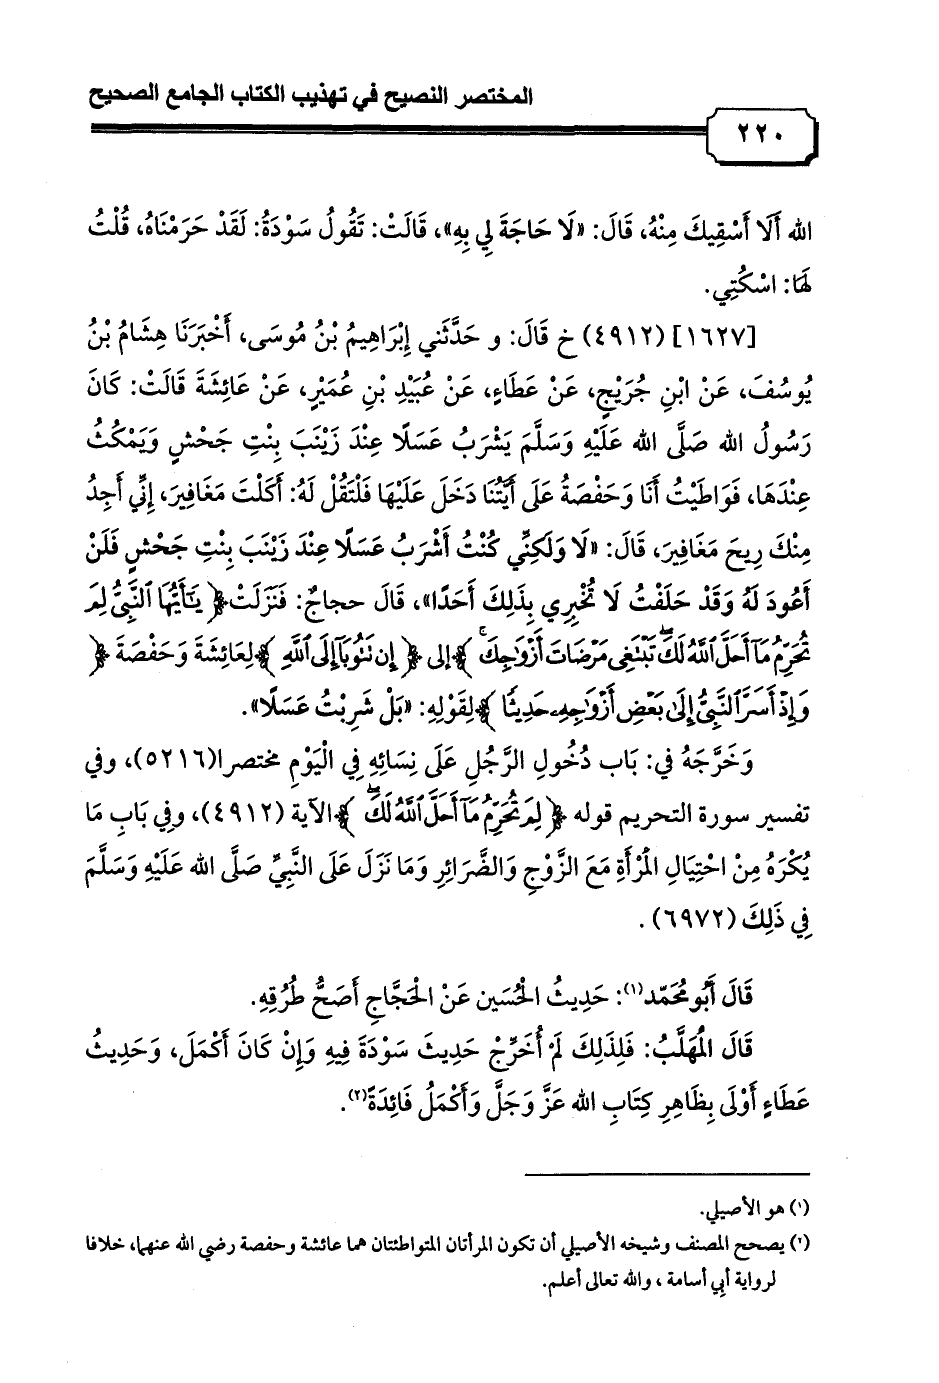 المختصر النصيح في تهذيب الكتاب الجامع الصحيح
٢٢٠
الله أَلَا أَسْقِيكَ مِنْهُ، قَالَ: «لَا حَاجَةَ لِي بِهِ»، قَالَتْ: تَقُولُ سَوْدَةُ: لَقَدْ حَرَمْنَاهُ، قُلْتُ
لَهَا: اسْكُتِي.
[١٦٢٧] (٤٩١٢) خ قَالَ: و حَدَّثَنِي إِبْرَاهِيمُ بْنُ مُوسَى، أَخْبَرَنَا هِشَامُ بْنُ
يُوسُفَ، عَنْ ابْنِ جُرَيْجٍ، عَنْ عَطَاءٍ، عَنْ عُبَيْدِ بْنِ عُمَيْرٍ، عَنْ عَائِشَةَ قَالَتْ: كَانَ
رَسُولُ الله صَلَّى الله عَلَيْهِ وَسَلَّمَ يَشْرَبُ عَسَلًا عِنْدَ زَيْنَبَ بِنْتِ جَحْشٍ وَيَمْكُثُ
عِنْدَهَا، فَوَاطَيْتُ أَنَا وَحَفْصَةُ عَلَى أَيَّتُنَا دَخَلَ عَلَيْهَا فَلْتَقُلْ لَهُ: أَكَلْتَ مَغَافِيرَ، إِنِّي أَجِدُ
مِنْكَ رِيحَ مَغَافِيرَ، قَالَ: «لَا وَلَكِنِّي كُنْتُ أَشْرَبُ عَسَلًا عِنْدَ زَيْنَبَ بِنْتِ جَحْشٍ فَلَنْ
أَعُودَ لَهُ وَقَدْ حَلَفْتُ لَا تُخْبِرِي بِذَلِكَ أَحَدًا»، قَال حجاجٌ: فَنَزَلَتْ ﴿يَٰٓأَيُّهَا ٱلنَّبِيُّ لِمَ
تُحَرِّمُ مَآ أَحَلَّ ٱللَّهُ لَكَۖ تَبْتَغِي مَرْضَاتَ أَزْوَٰجِكَۚ ﴾ إلى ﴿ إِن تَتُوبَآ إِلَى ٱللَّهِ ﴾ لِعَائِشَةَ وَحَفْصَةَ ﴿
وَإِذْ أَسَرَّ ٱلنَّبِيُّ إِلَىٰ بَعْضِ أَزْوَٰجِهِۦ حَدِيثًا ﴾ لِقَوْلِهِ: «بَلْ شَرِبْتُ عَسَلًا».
وَخَرَّجَهُ في: بَاب دُخُولِ الرَّجُلِ عَلَى نِسَائِهِ فِي الْيَوْمِ مختصرا (٥٢١٦)، وفي
تفسير سورة التحريم قوله ﴿ لِمَ تُحَرِّمُ مَآ أَحَلَّ ٱللَّهُ لَكَۖ ﴾ الآية (٤٩١٢)، وفِي بَابِ مَا
يُكْرَهُ مِنْ احْتِيَالِ الْمَرْأَةِ مَعَ الزَّوْجِ وَالضَّرَائِرِ وَمَا نَزَلَ عَلَى النَّبِيِّ صَلَّى الله عَلَيْهِ وَسَلَّمَ
فِي ذَلِكَ (٦٩٧٢).
قَالَ أَبُو مُحَمَّد(١): حَدِيثُ الْحُسَين عَنْ الْحَجَّاجِ أَصَحُّ طُرُقِهِ.
قَالَ الْمُهَلَّبُ: فَلِذَلِكَ لَمْ أُخَرِّجْ حَدِيثَ سَوْدَةَ فِيهِ وَإِنْ كَانَ أَكْمَلَ، وَحَدِيثُ
عَطَاءٍ أَوْلَى بِظَاهِرِ كِتَابِ الله عَزَّ وَجَلَّ وَأَكْمَلُ فَائِدَةً(٢).
(١) هو الأصيلي.
(٢) يصحح المصنف وشيخه الأصيلي أن تكون المرأتان المتواطئتان هما عائشة وحفصة رضي الله عنهما، خلافا
لرواية أبي أسامة ، والله تعالى أعلم.